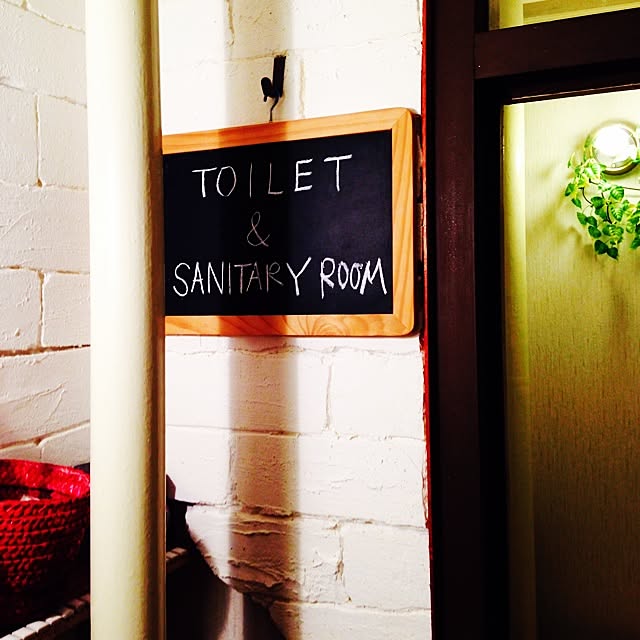 TOILET
&
SANITARY ROOM